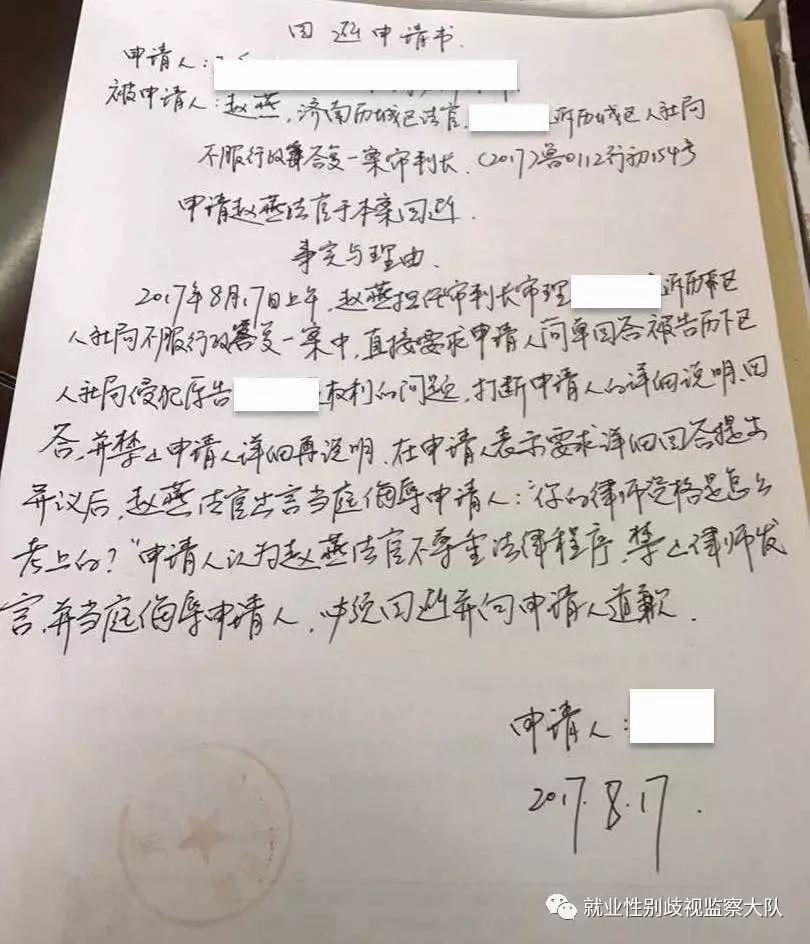 回避申请书.
申请人:
被申请人:赵燕,济南历城区法官, 诉历城区人社局
不服行政答复一案审判长.(2017)鲁0112行初154号
申请赵燕法官于本案回避.
事实与理由.
2017年8月17日上午,赵燕担任审判长审理 诉历 区
人社局不服行政答复一案中,直接要求申请人简单回答被告历下区
人社局侵犯原告 权利的问题,打断申请人的详细说明、回
答,并禁止申请人详细再说明,在申请人表示要求详细回答提出
异议后,赵燕法官出言当庭侮辱申请人:“你的律师资格是怎么
考上的?”申请人认为赵燕法官不尊重法律程序,禁止律师发
言,并当庭侮辱申请人,必须回避并向申请人道歉.
申请人:
2017.8.17.
就业性别歧视监察大队